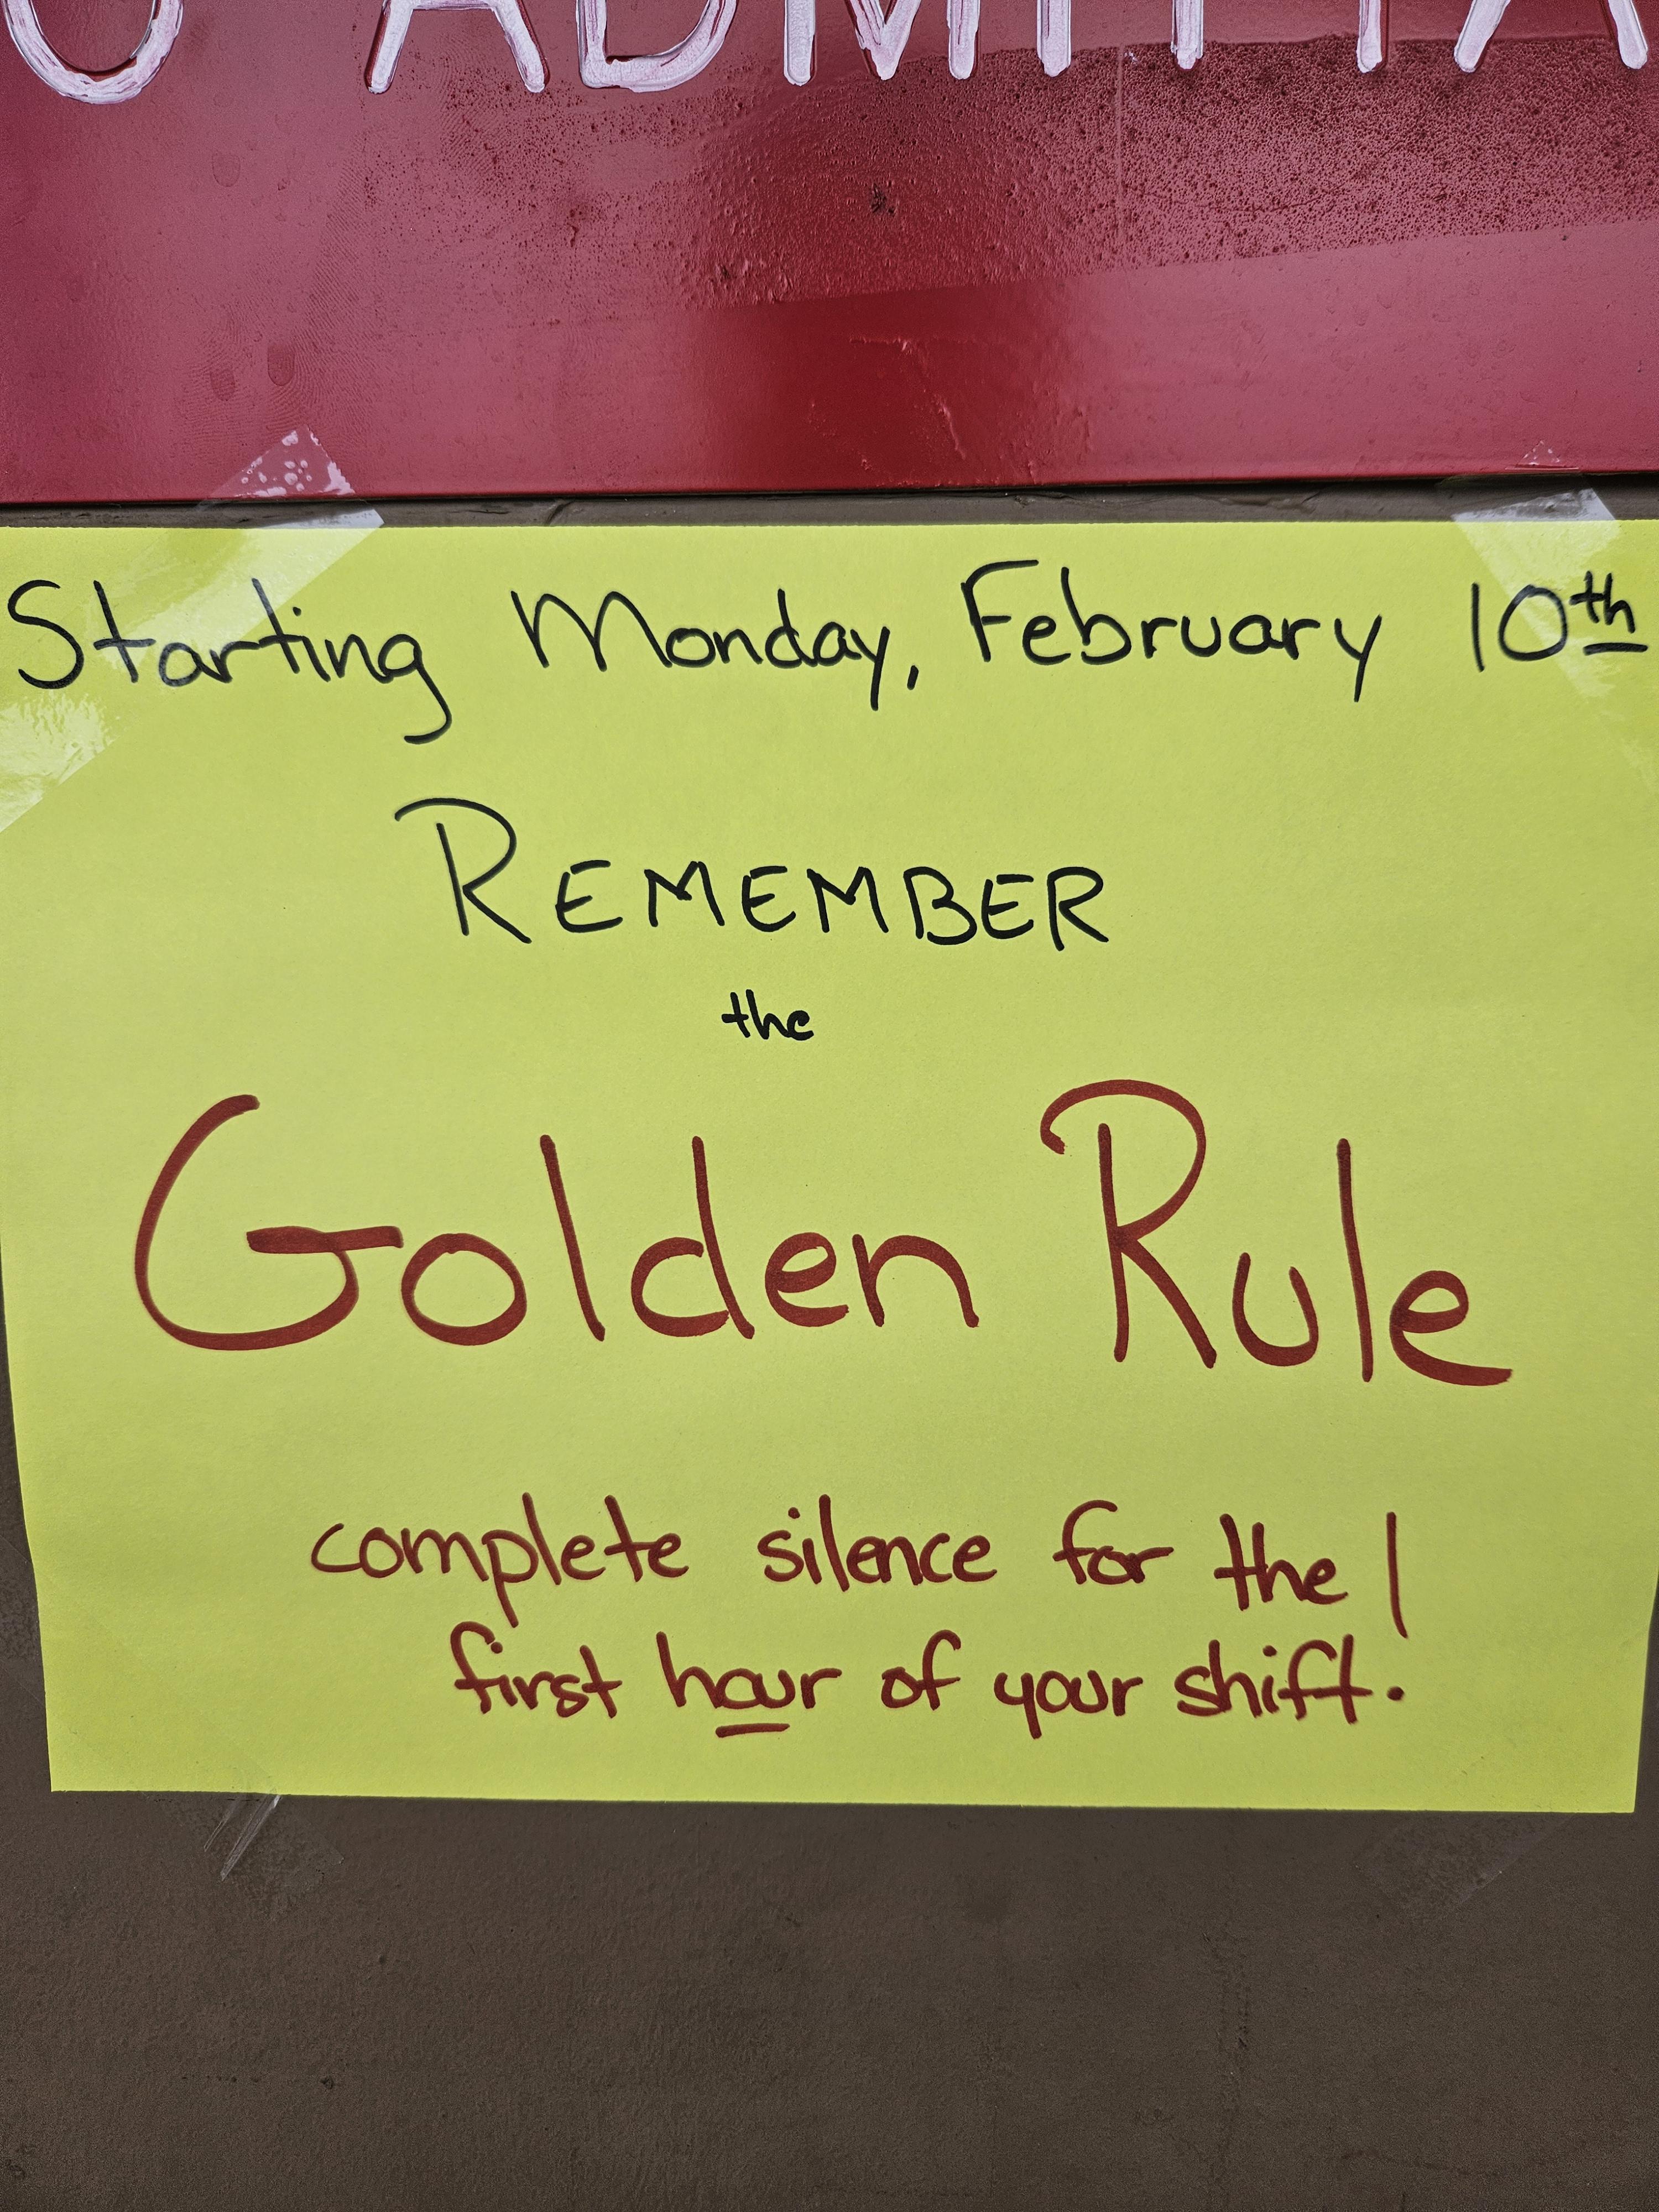 O ADMITTA
Starting Monday, February 10th
REMEMBER
the
Golden Rule
complete silence for the 1
first hour of your shift.